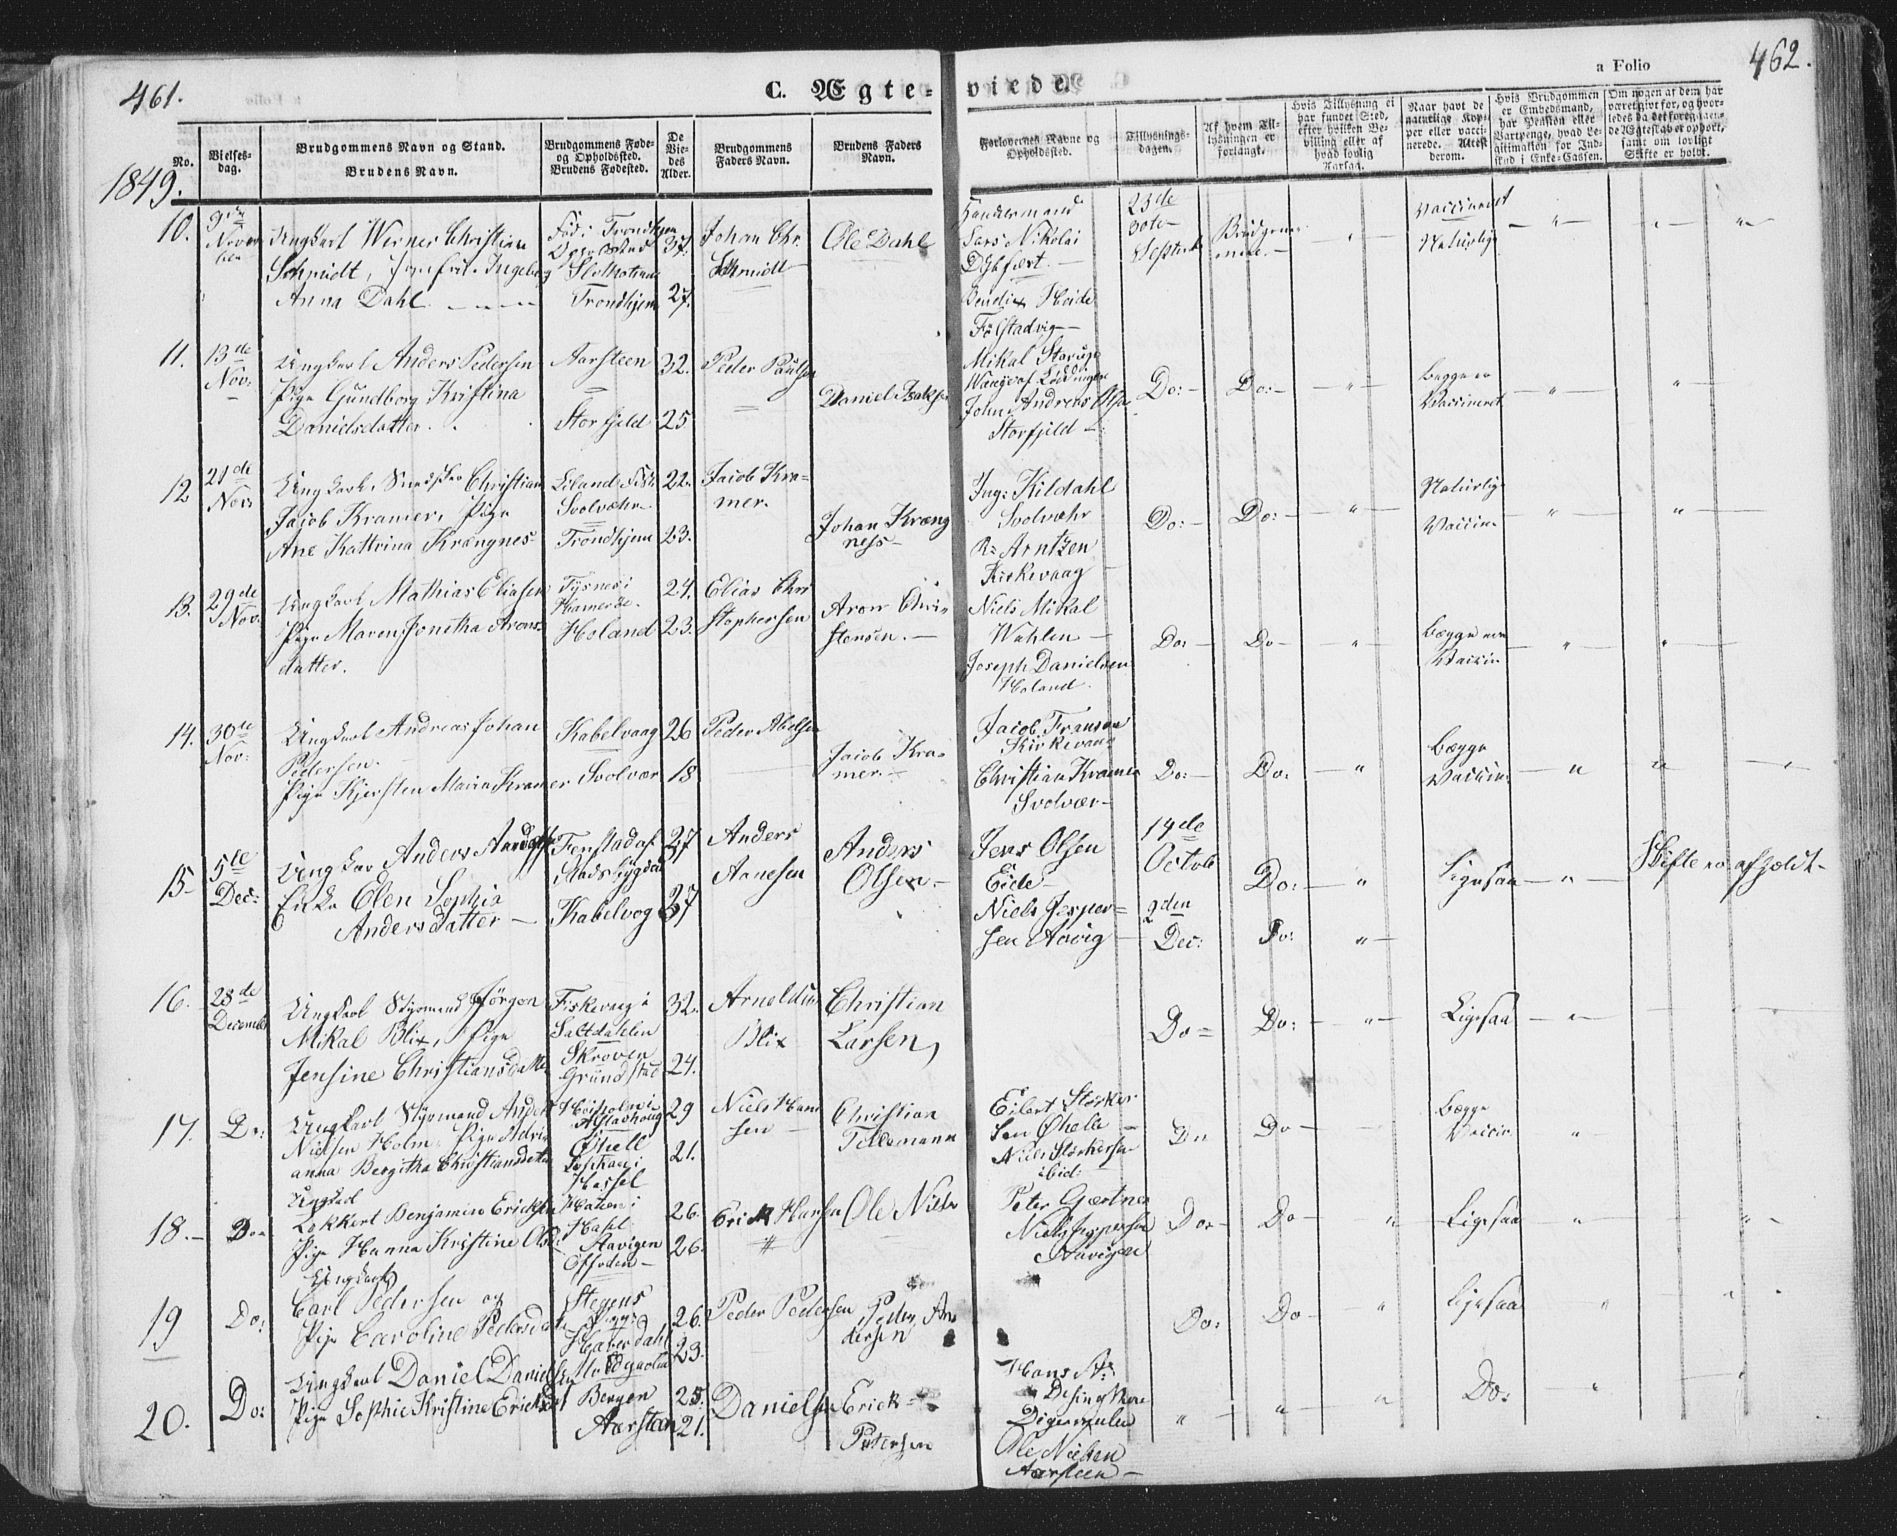 461.
C. Ægte=
viede.
a Folio
462.
No.
Vielses-
dag.
Brudgommens Navn og Stand.
Brudens Navn.
Brudgommens Føde-
og Opholdssted.
Brudens Fødested.
De
Vie-
des
Alder.
Brudgommens
Faders Navn.
Brudens Faders
Navn.
Forlovernes Navne og
Opholdssted.
Tillysnings-
dagen.
Af hvem Til-
lysningen er
forlangt.
Hvis Tillysning ei
har fundet Sted,
efter hvilken Be-
villing eller af
hvad lovlig
Aarsag.
Naar havt de
naturlige Kop-
per eller vacci-
nerede. Attest
derom.
Hvis Brudgommen
er Embedsmand,
har Pension eller
Vartpenge, hvad Le-
gitimation for Ind-
skud i Enke-Cassen.
Om nogen af dem har
været givt før, og hvor-
ledes da det foregaaen-
de Ægteskab er ophørt,
samt om lovligt
Skifte er holdt.
1849.
10.
9de
Novem
ber
Ungkarl Werner Christian
Schmidt, Ingeborg
Anna Dahl
Trondhjem
37.
27.
Johan Chr.
Schmidt
Ole Dahl
Handelsmand
Lars Nikolai
Bendix Heide
23de
30te
Septemb
Brudgom-
men.
Vaccineret
Naturlige
11.
13de
Nov:
Ungkarl Anders Pedersen
Pige Gundborg Kristina
Danielsdatter.
Aarsteen
Storfjeld
32.
25
Peder Paulsen
Daniel Isaksen
Mikal
John Andreas
Storfjeld
Do:
Do:
Begge er
Vaccineret
12
21de
Nov
Ungkarl, Snedker Christian
Jacob Kramer, Pige
Ane Kattrina Krægnes
Svolvæhr
Trondhjem
22.
23.
Jacob Kra=
mer.
Johan Kræng
ness
Ing: Kildahl
Svolvæhr
R: Arntzen
Kirkevaag
Do:
Do:
Naturlig
Vaccin.
13.
29de
Nov.
Ungkarl Mathias Eliasen
Pige Maren Jonetha Arons
datter.
Hamerøe.
Holand
24.
23.
Elias Chri
stophersen
Aron Chri=
stensen.
Niels Mikal
Wahlen
Joseph Danielsen
Holand.
Do:
Do
Begge ere
Vaccin
14.
30te
Nov:
Ungkarl Andreas Johan
Pedersen.
Pige Kjersten Maria Kramer
Kabelvaag
Svolvær
26
18
Peder Abelsen
Jacob Kra=
mer.
Jacob Fransen
Kirkevaag
Christian Kramer
Svolvær
Do:
Do:
Begge
Vaccin:
15
5te
Dec:
Ungkar Anders
Enke Olen Sophia
Andersdatter
Kabelvog
37
37
Anders
Arnesen
Anders
Olsen.
Jens Olsen
Eide
Niels Jesper=
sen Aavig
14de
Octob
2den
Dec:
Do:
Do:
Ligesaa
Skifte er afholdt
16.
28de
December
Ungkarl Styrmand Jørgen
Mikal Blix, Pige
Jensine Christiansdatter
Fiskevaag i
Saltdahlen
Skroven
Grundstad
32.
24.
Arnoldus
Blix
Christian
Larsen,
Do
Do:
Ligesaa
17.
Do:
Ungkarl Styrmand Anders
Nielsen Holm. Pige Adri
anna Bergitha Christiansdatter
Øhell
Hassel
29
21.
Niels Han
sen
Christian
Tillemann
Eilert Størker
sen Øhelle
Niels Størkersen
ibid:
Do
Do
Begge
Vaccin
18.
Do
Ungkarl
Lokkert Benjamin Ericksen
Pige Hanna Kristine Olsd.
Aavigen
26.
26.
Erick Hansen
Ole Niels
Peter Gærtner
Niels Jespersen
Aavigen
Do
Do
Ligesaa
19
Do:
Ungkarl
Carl Pedersen og
Pige Caroline Pedersdat
Stegens
26.
23.
Peder Pedersen
Peder An
dersen
Do:
Do
Ligesaa
20.
Do:
Ungkarl Daniel Danielsen
Pige Sophie Kristine Ericksdat
Bergen
Aarsteen
25.
21.
Danielsen
Erick
Petersen
Hans
Digermulen
Ole Nielsen
Aarsteen
Do: